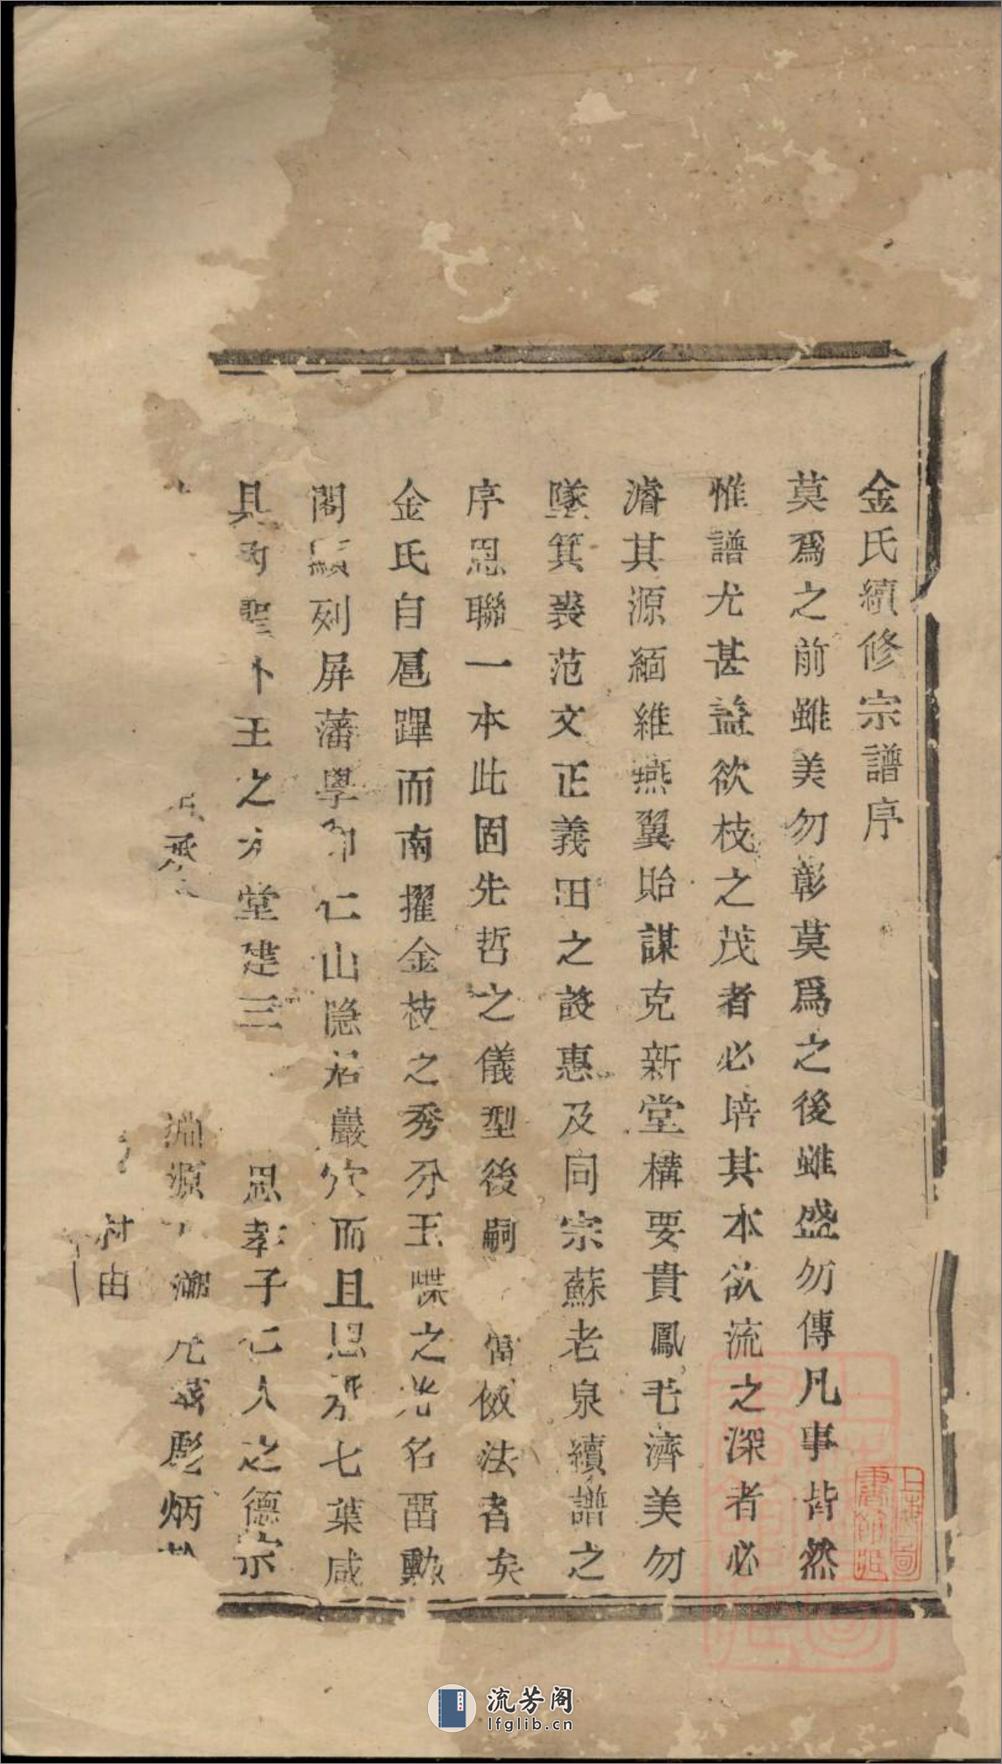 金氏續修宗譜序
莫爲之前雖美勿彰莫爲之後雖盛勿傳凡事皆然
惟譜尤甚葢欲枝之茂者必培其本欲流之深者必
濬其源緬維燕翼貽謀克新堂構要貴鳳毛濟美勿
墜箕裘范文正義田之設惠及同宗蘇老泉續譜之
序思聯一本此固先哲之儀型後嗣當傚法者矣
金氏自扈蹕而南擢金枝之秀分玉牒之光名畱勳
閣列屏藩學仁山隱君巖穴而且思七葉咸
具王之堂建三思孝子仁人之德宗
承淵源炳
村由
上海圖書館藏
流芳阁
lfglib.cn